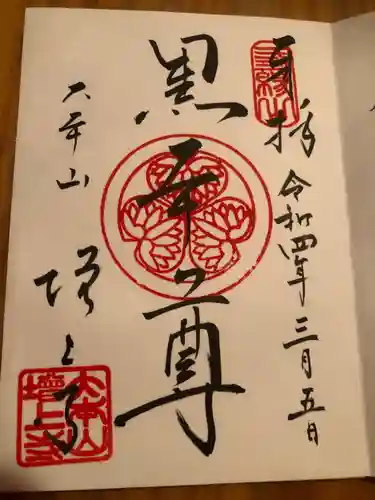 奉拝 令和四年三月五日
三縁山
黒本尊
大本山
増上寺
大本山
増上寺